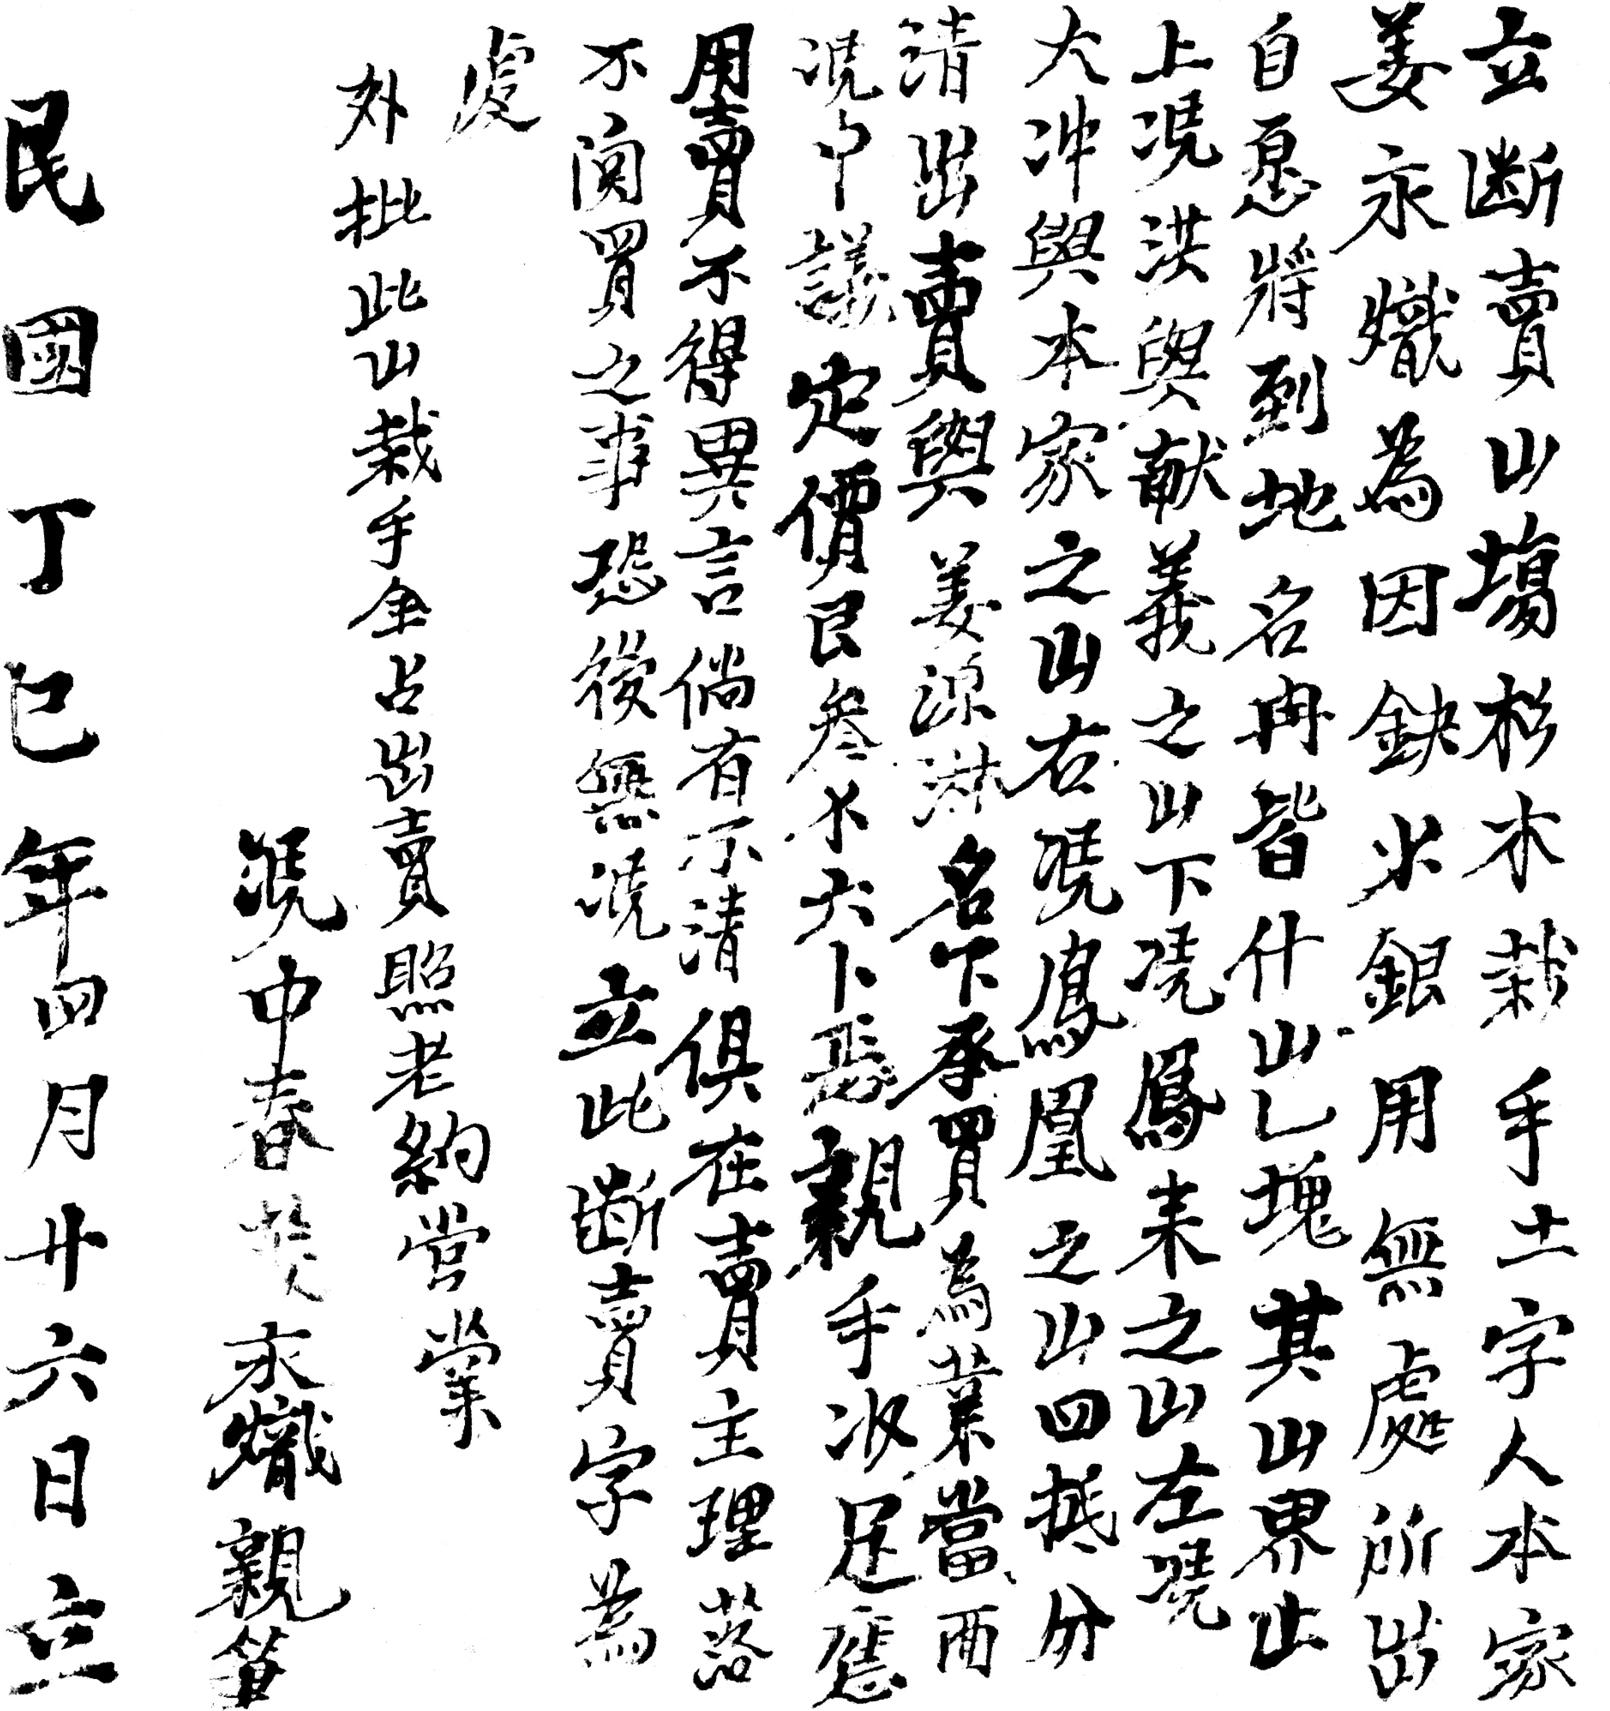 立斷賣山塲杉木栽手土字人本家
姜永熾為因缺少銀用無處所出
自愿將到地名冉皆什山乚塊其山界止
上凴洪與献義之山下凴鳳耒之山左凴
大冲與本家之山右凴鳳凰之山四抵分
清出賣與姜源淋名下承買為業當面
凴中議定價艮叁不六卜焉親手收足應
用賣不得異言倘有不清俱在賣主理落
不関買之事恐後無凴立此斷賣字為
處
外批此山栽手全占出賣照老約営業
凴中春 永熾親筆
民國丁巳年四月廿六日立